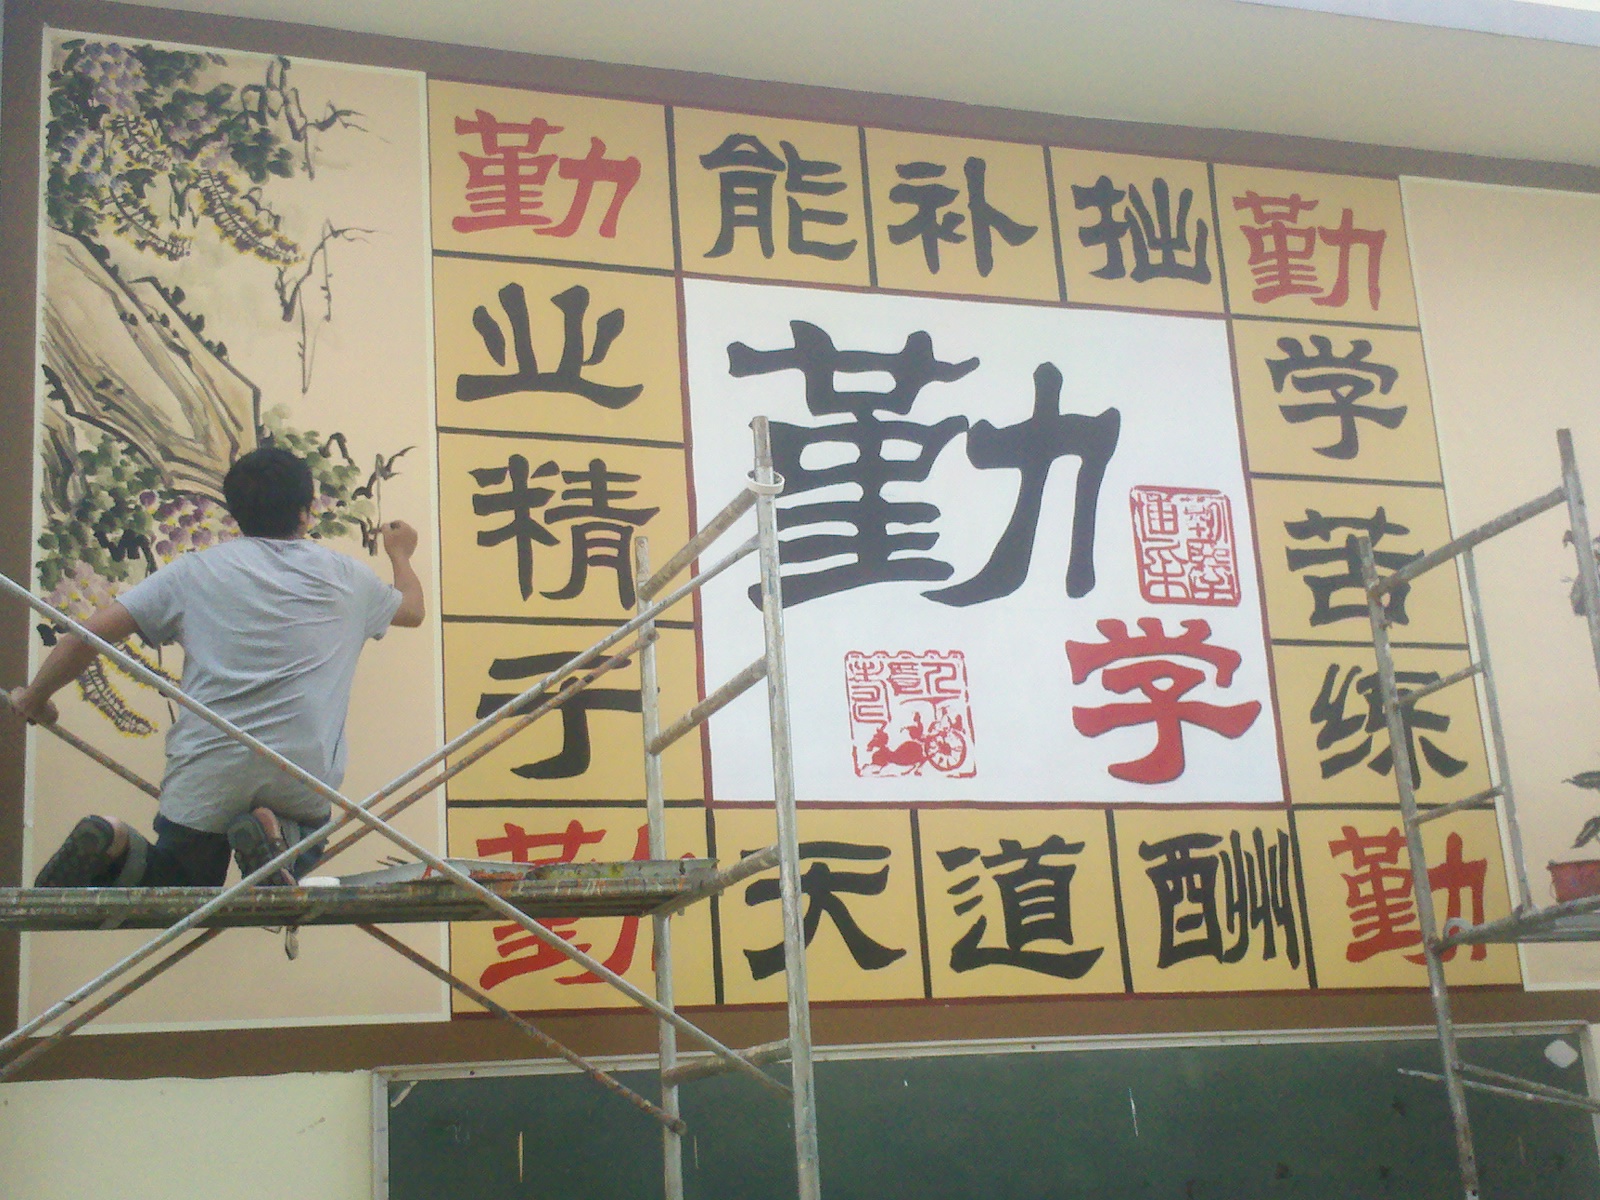 勤能补拙勤
学苦练
业精于
勤天道酬勤
勤
学